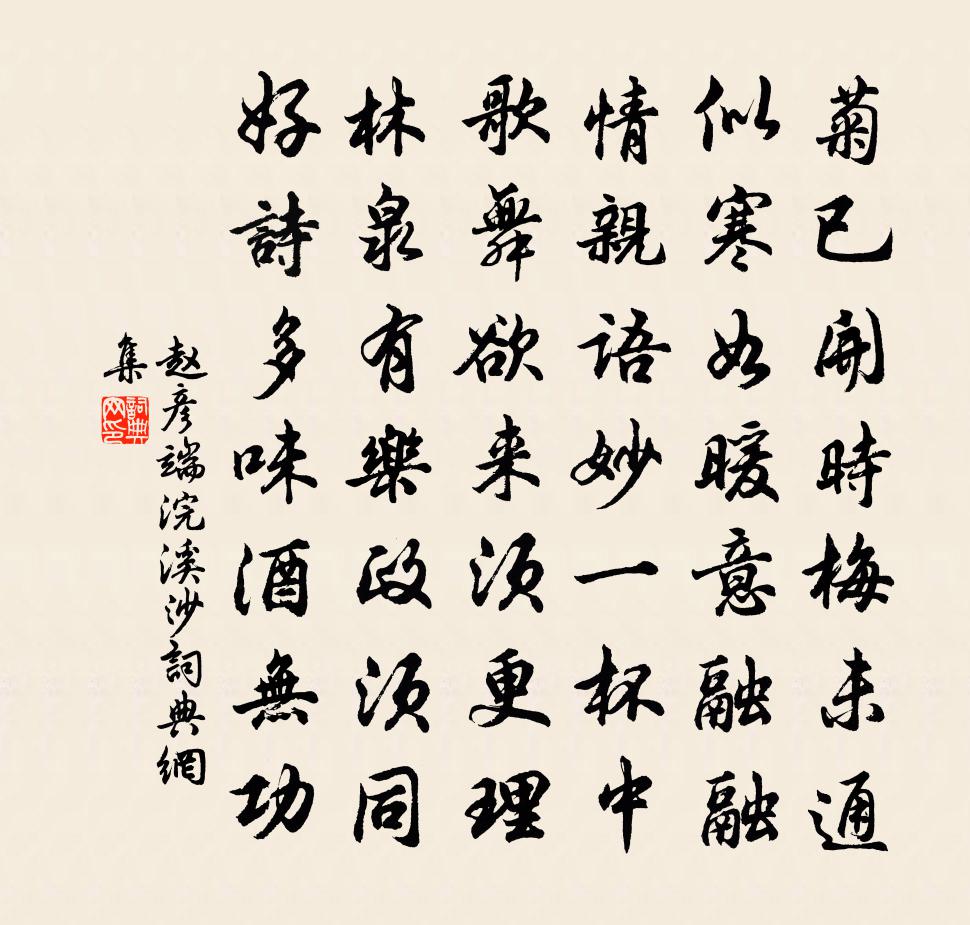 菊已開時梅未通
似寒如暖意融融
情親語妙一杯中
歌舞欲来須更理
林泉有樂政須同
好詩多味酒無功
赵彦端浣溪沙詞典網
集
詞典
网印